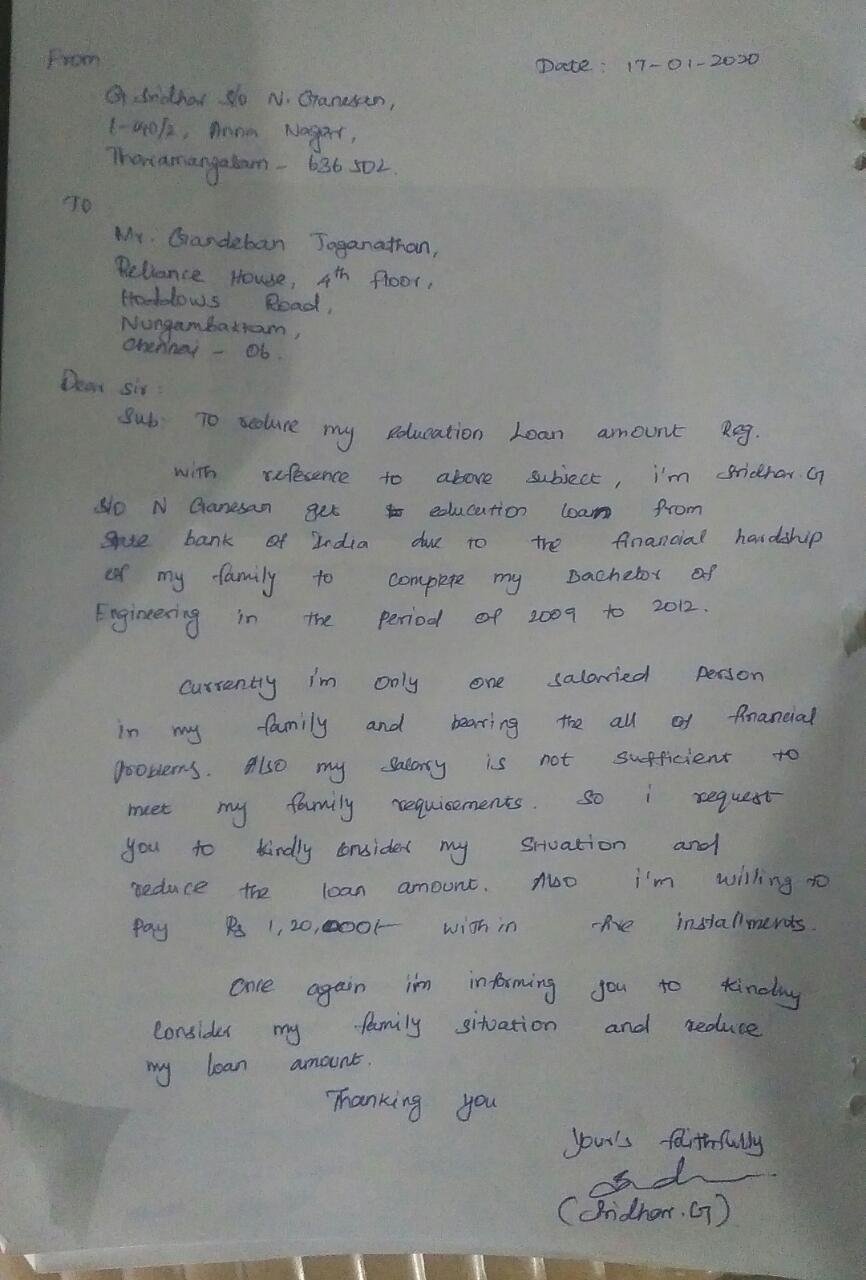 From
Date : 17-01-2020
G. Sridhar S/o N. Ganesan,
Anna Nagar,
Tharamangalam - 636 502.
To
Mr. Gandeban Jaganathan,
Reliance House, 4th floor,
Haddows Road,
Nungambakkam,
Chennai - 06.
Dear Sir :
Sub: To reduce my education Loan amount Reg.
With reference to above subject, i'm Sridhar.G
S/o N Ganesan get education loan from
State bank of India due to the financial hardship
of my family to complete my Bachelor of
Engineering in the period of 2009 to 2012.
Currently i'm only one salaried person
in my family and bearing the all of financial
problems. Also my salary is not sufficient to
meet my family requirements. So i request
you to kindly consider my situation and
reduce the loan amount. Also i'm willing to
pay Rs 1,20,000/- with in five installments.
Once again i'm informing you to kindly
consider my family situation and reduce
my loan amount.
Thanking you
Your's faithfully
(Sridhar.G)